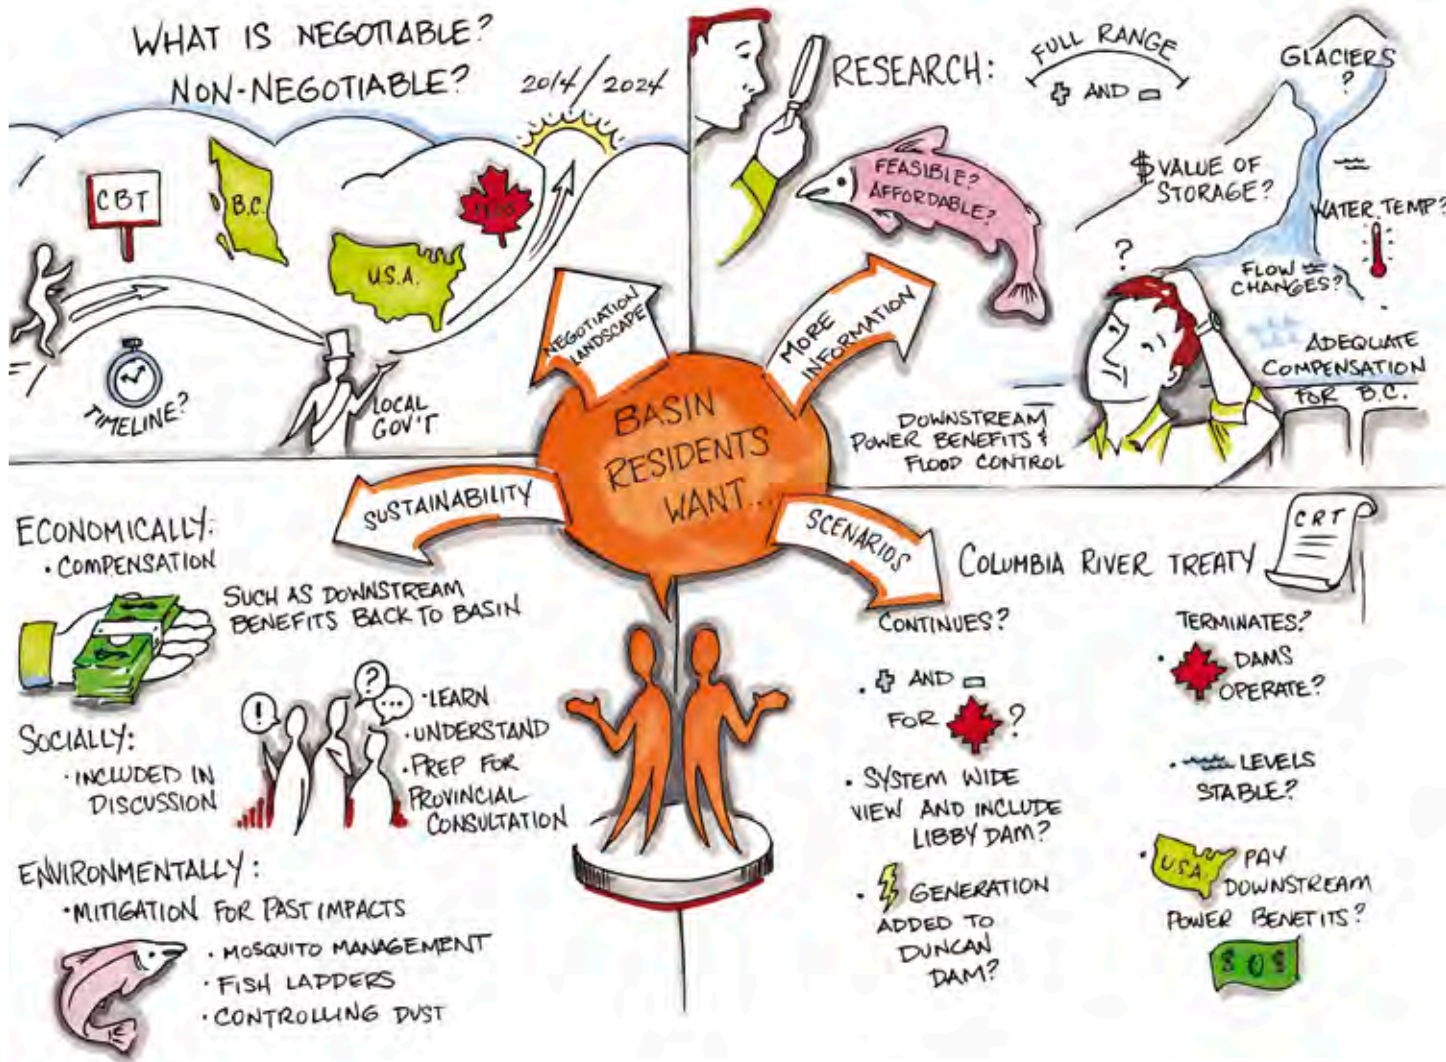 WHAT IS NEGOTIABLE?
NON-NEGOTIABLE?
2014/2024
CBT
B.C.
U.S.A.
TIMELINE?
LOCAL
GOV'T
NEGOTIATION
LANDSCAPE
RESEARCH:
FULL RANGE
+ AND -
GLACIERS
?
FEASIBLE?
AFFORDABLE?
$ VALUE OF
STORAGE?
WATER TEMP?
?
FLOW
CHANGES?
MORE
INFORMATION
ADEQUATE
COMPENSATION
FOR B.C.
DOWNSTREAM
POWER BENEFITS &
FLOOD CONTROL
BASIN
RESIDENTS
WANT...
SUSTAINABILITY
ECONOMICALLY:
• COMPENSATION
SUCH AS DOWNSTREAM
BENEFITS BACK TO BASIN
SOCIALLY:
• INCLUDED IN
DISCUSSION
!
?
...
• LEARN
• UNDERSTAND
• PREP FOR
PROVINCIAL
CONSULTATION
ENVIRONMENTALLY:
• MITIGATION FOR PAST IMPACTS
• MOSQUITO MANAGEMENT
• FISH LADDERS
• CONTROLLING DUST
SCENARIOS
COLUMBIA RIVER TREATY
CRT
CONTINUES?
• + AND -
FOR ?
• SYSTEM WIDE
VIEW AND INCLUDE
LIBBY DAM?
• GENERATION
ADDED TO
DUNCAN
DAM?
TERMINATES?
• DAMS
OPERATE?
• LEVELS
STABLE?
• U.S.A. PAY
DOWNSTREAM
POWER BENEFITS?
$ 0 $